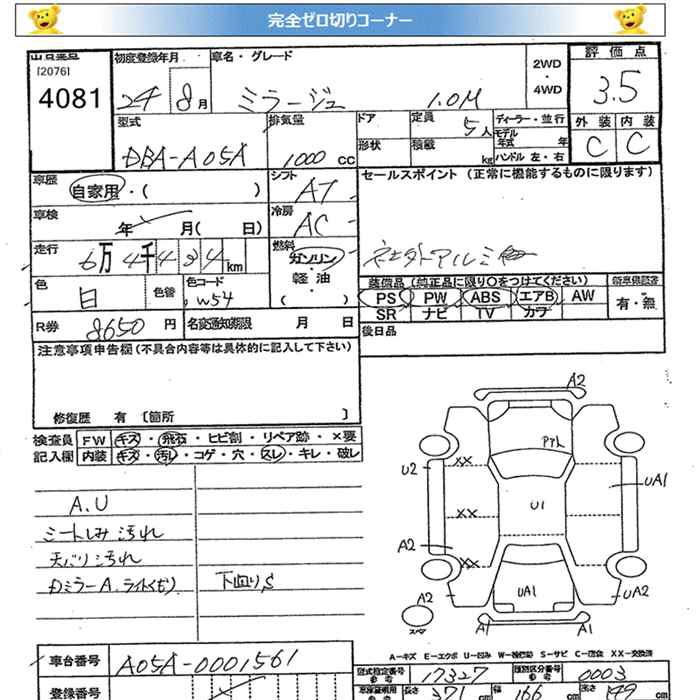 完全ゼロ切りコーナー
[2076]
4081
初度登録年月 車名・グレード
24 8月 ミラージュ 1.0M
2WD・4WD
評価点
3.5
型式 排気量 ドア 定員 5人 ディーラー・並行
DBA-A05A 1000cc 形状 積載 kg モデル年式 年 ハンドル 左・右
外装 内装
C C
車歴 自家用・( )
シフト AT
セールスポイント (正常に機能するものに限ります)
車検 年 月( 日)
冷房 AC
走行 6万4千434km
燃料 ガソリン・軽油・( )
色 白 色替 色コード W54
装備品 (純正品に限り○をつけてください) 新車保証書
PS PW ABS エアB AW 有・無
SR ナビ TV カワ
R券 8650円 名変通知期限 月 日
後日品
注意事項申告欄(不具合内容等は具体的に記入して下さい)
修復歴 有 [箇所 ]
検査員 FW キズ・飛石・ヒビ割・リペア跡・×要
記入欄 内装 キズ・汚れ・コゲ・穴・スレ・キレ・破レ
A.U
シートしみ汚れ
天バリ汚れ
Dミラー A. ライトくもり 下回りS
A2
PTL
U2 XX UA1
XX U1
A2 XX
A2 UA1 UA2
スペア A1 A1
A-キズ E-エクボ U-凹み W-補修跡 S-サビ C-腐食 XX-交換済
車台番号 A05A-0001561
型式指定番号 参考 17327 類別区分番号 参考 0003
登録番号
車庫証明用 参考 長さ 371cm 幅 166cm 高さ 149cm